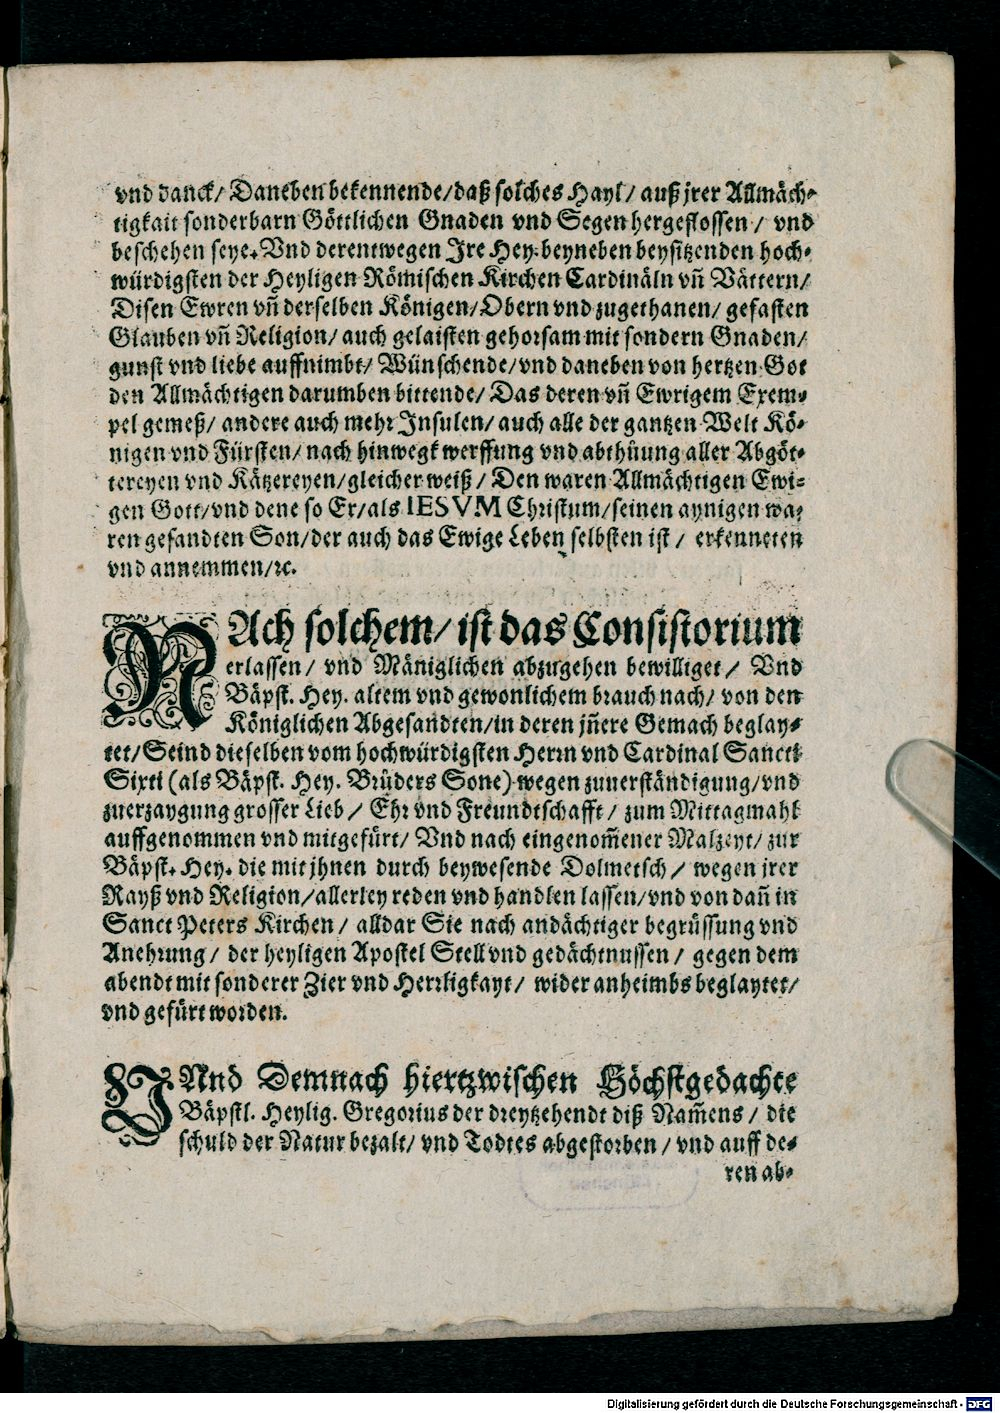 vnd danck/ Daneben bekennende/daß solches Hayl/ auß jrer Allmäch-
tigkait sonderbarn Göttlichen Gnaden vnd Segen hergeflossen/ vnd
beschehen seye. Vnd derentwegen Ire Hey. beyneben beysitzenden hoch-
würdigsten der Heyligen Römischen Kirchen Cardinäln vñ Vättern/
Disen Ewren vñ derselben Königen/Obern vnd zugethanen/ gefasten
Glauben vñ Religion/ auch gelaisten gehorsam mit sondern Gnaden/
gunst vnd liebe auffnimbt/ Wünschende/vnd daneben von hertzen Got
den Allmächtigen darumben bittende/ Das deren vñ Ewrigem Exem-
pel gemeß/ andere auch mehr Insulen/ auch alle der gantzen Welt Kö-
nigen vnd Fürsten/ nach hinwegk werffung vnd abthüung aller Abgöt-
tereyen vnd Kätzereyen/gleicher weiß/ Den waren Allmächtigen Ewi-
gen Gott/vnd dene so Er/als IESVM Christum/seinen aynigen wa-
ren gesandten Son/der auch das Ewige Leben selbsten ist/ erkenneten
vnd annemmen/ꝛc.
NAch solchem/ ist das Consistorium
erlassen/ vnd Mäniglichen abzugehen bewilliget/ Vnd
Bäpst. Hey. altem vnd gewonlichem brauch nach/ von den
Königlichen Abgesandten/in deren jñere Gemach beglay-
tet/Seind dieselben vom hochwürdigsten Herrn vnd Cardinal Sancti
Sixti (als Bäpst. Hey. Brüders Sone) wegen zuuerständigung/vnd
zuerzaygung grosser Lieb/ Ehr vnd Freundtschafft/ zum Mittagmahl
auffgenommen vnd mitgefürt/ Vnd nach eingenom̃ener Malzeyt/ zur
Bäpst. Hey. die mit jhnen durch beywesende Dolmetsch/ wegen jrer
Rayß vnd Religion/allerley reden vnd handlen lassen/vnd von dañ in
Sanct Peters Kirchen/ alldar Sie nach andächtiger begrüssung vnd
Anehrung/ der heyligen Apostel Stell vnd gedächtnussen/ gegen dem
abendt mit sonderer Zier vnd Herrligkayt/ wider anheimbs beglaytet/
vnd gefürt worden.
VNnd Demnach hiertzwischen Höchstgedachte
Bäpstl. Heylig. Gregorius der dreytzehendt diß Nam̃ens/ die
schuld der Natur bezalt/ vnd Todtes abgestorben/ vnd auff de-
ren ab-
Digitalisierung gefördert durch die Deutsche Forschungsgemeinschaft - DFG